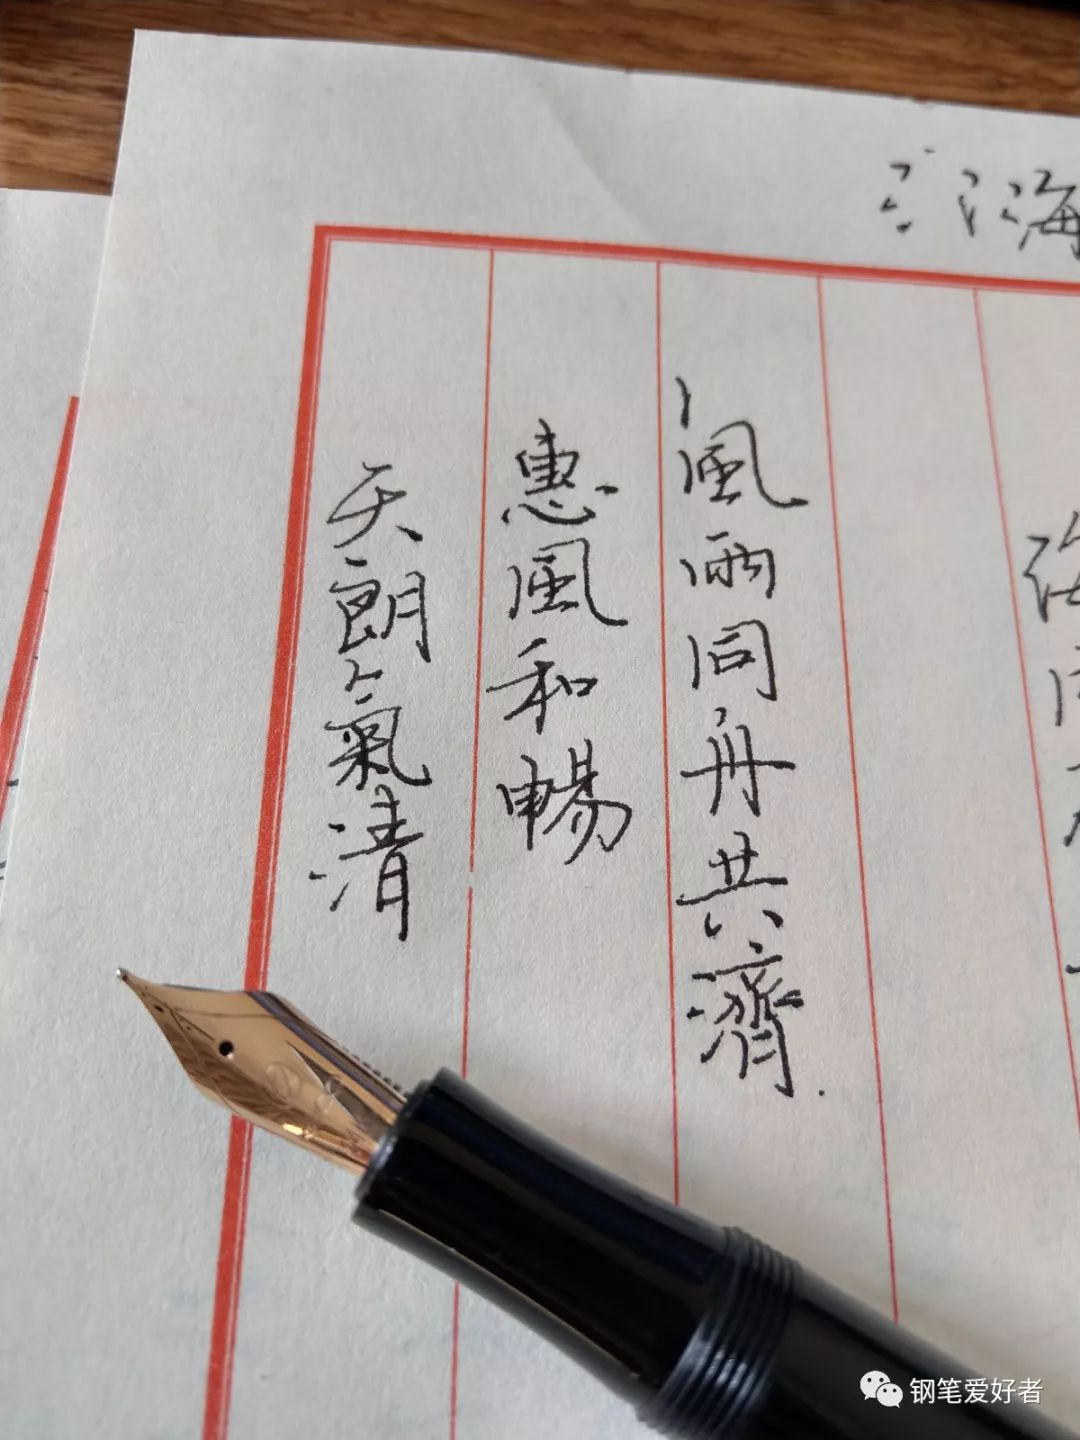 海
風雨同舟共濟.
惠風和暢
天朗氣清
钢笔爱好者